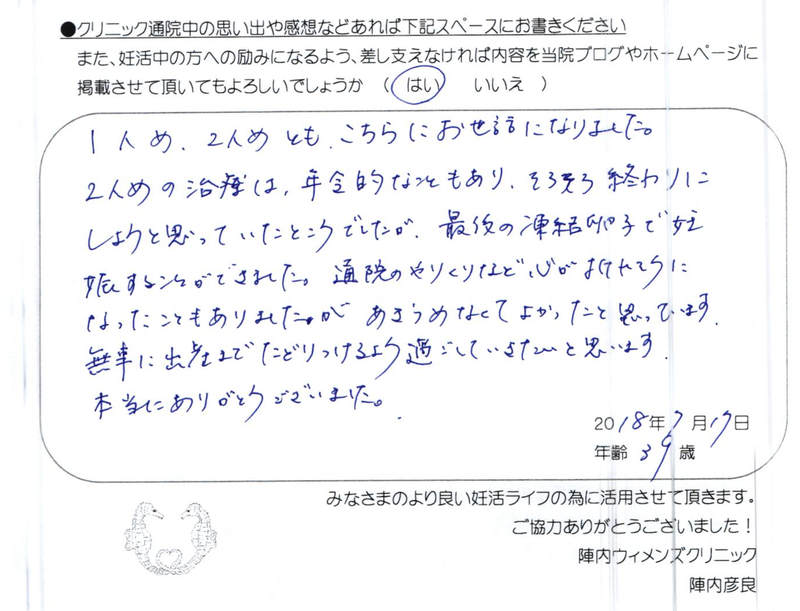 ●クリニック通院中の思い出や感想などあれば下記スペースにお書きください
また、妊活中の方への励みになるよう、差し支えなければ内容を当院ブログやホームページに
掲載させて頂いてもよろしいでしょうか （ はい　いいえ ）
1人め、2人めとも、こちらにお世話になりました。
2人めの治療は、年令的なこともあり、そろそろ終わりに
しようと思っていたところでしたが、最後の凍結卵子で妊
娠することができました。通院のやりくりなど心が折れそうに
なったこともありましたが あきらめなくてよかったと思っています。
無事に出産までたどりつけるよう過ごしていきたいと思います。
本当にありがとうございました。
2018年7月17日
年齢 39歳
みなさまのより良い妊活ライフの為に活用させて頂きます。
ご協力ありがとうございました！
陣内ウィメンズクリニック
陣内彦良